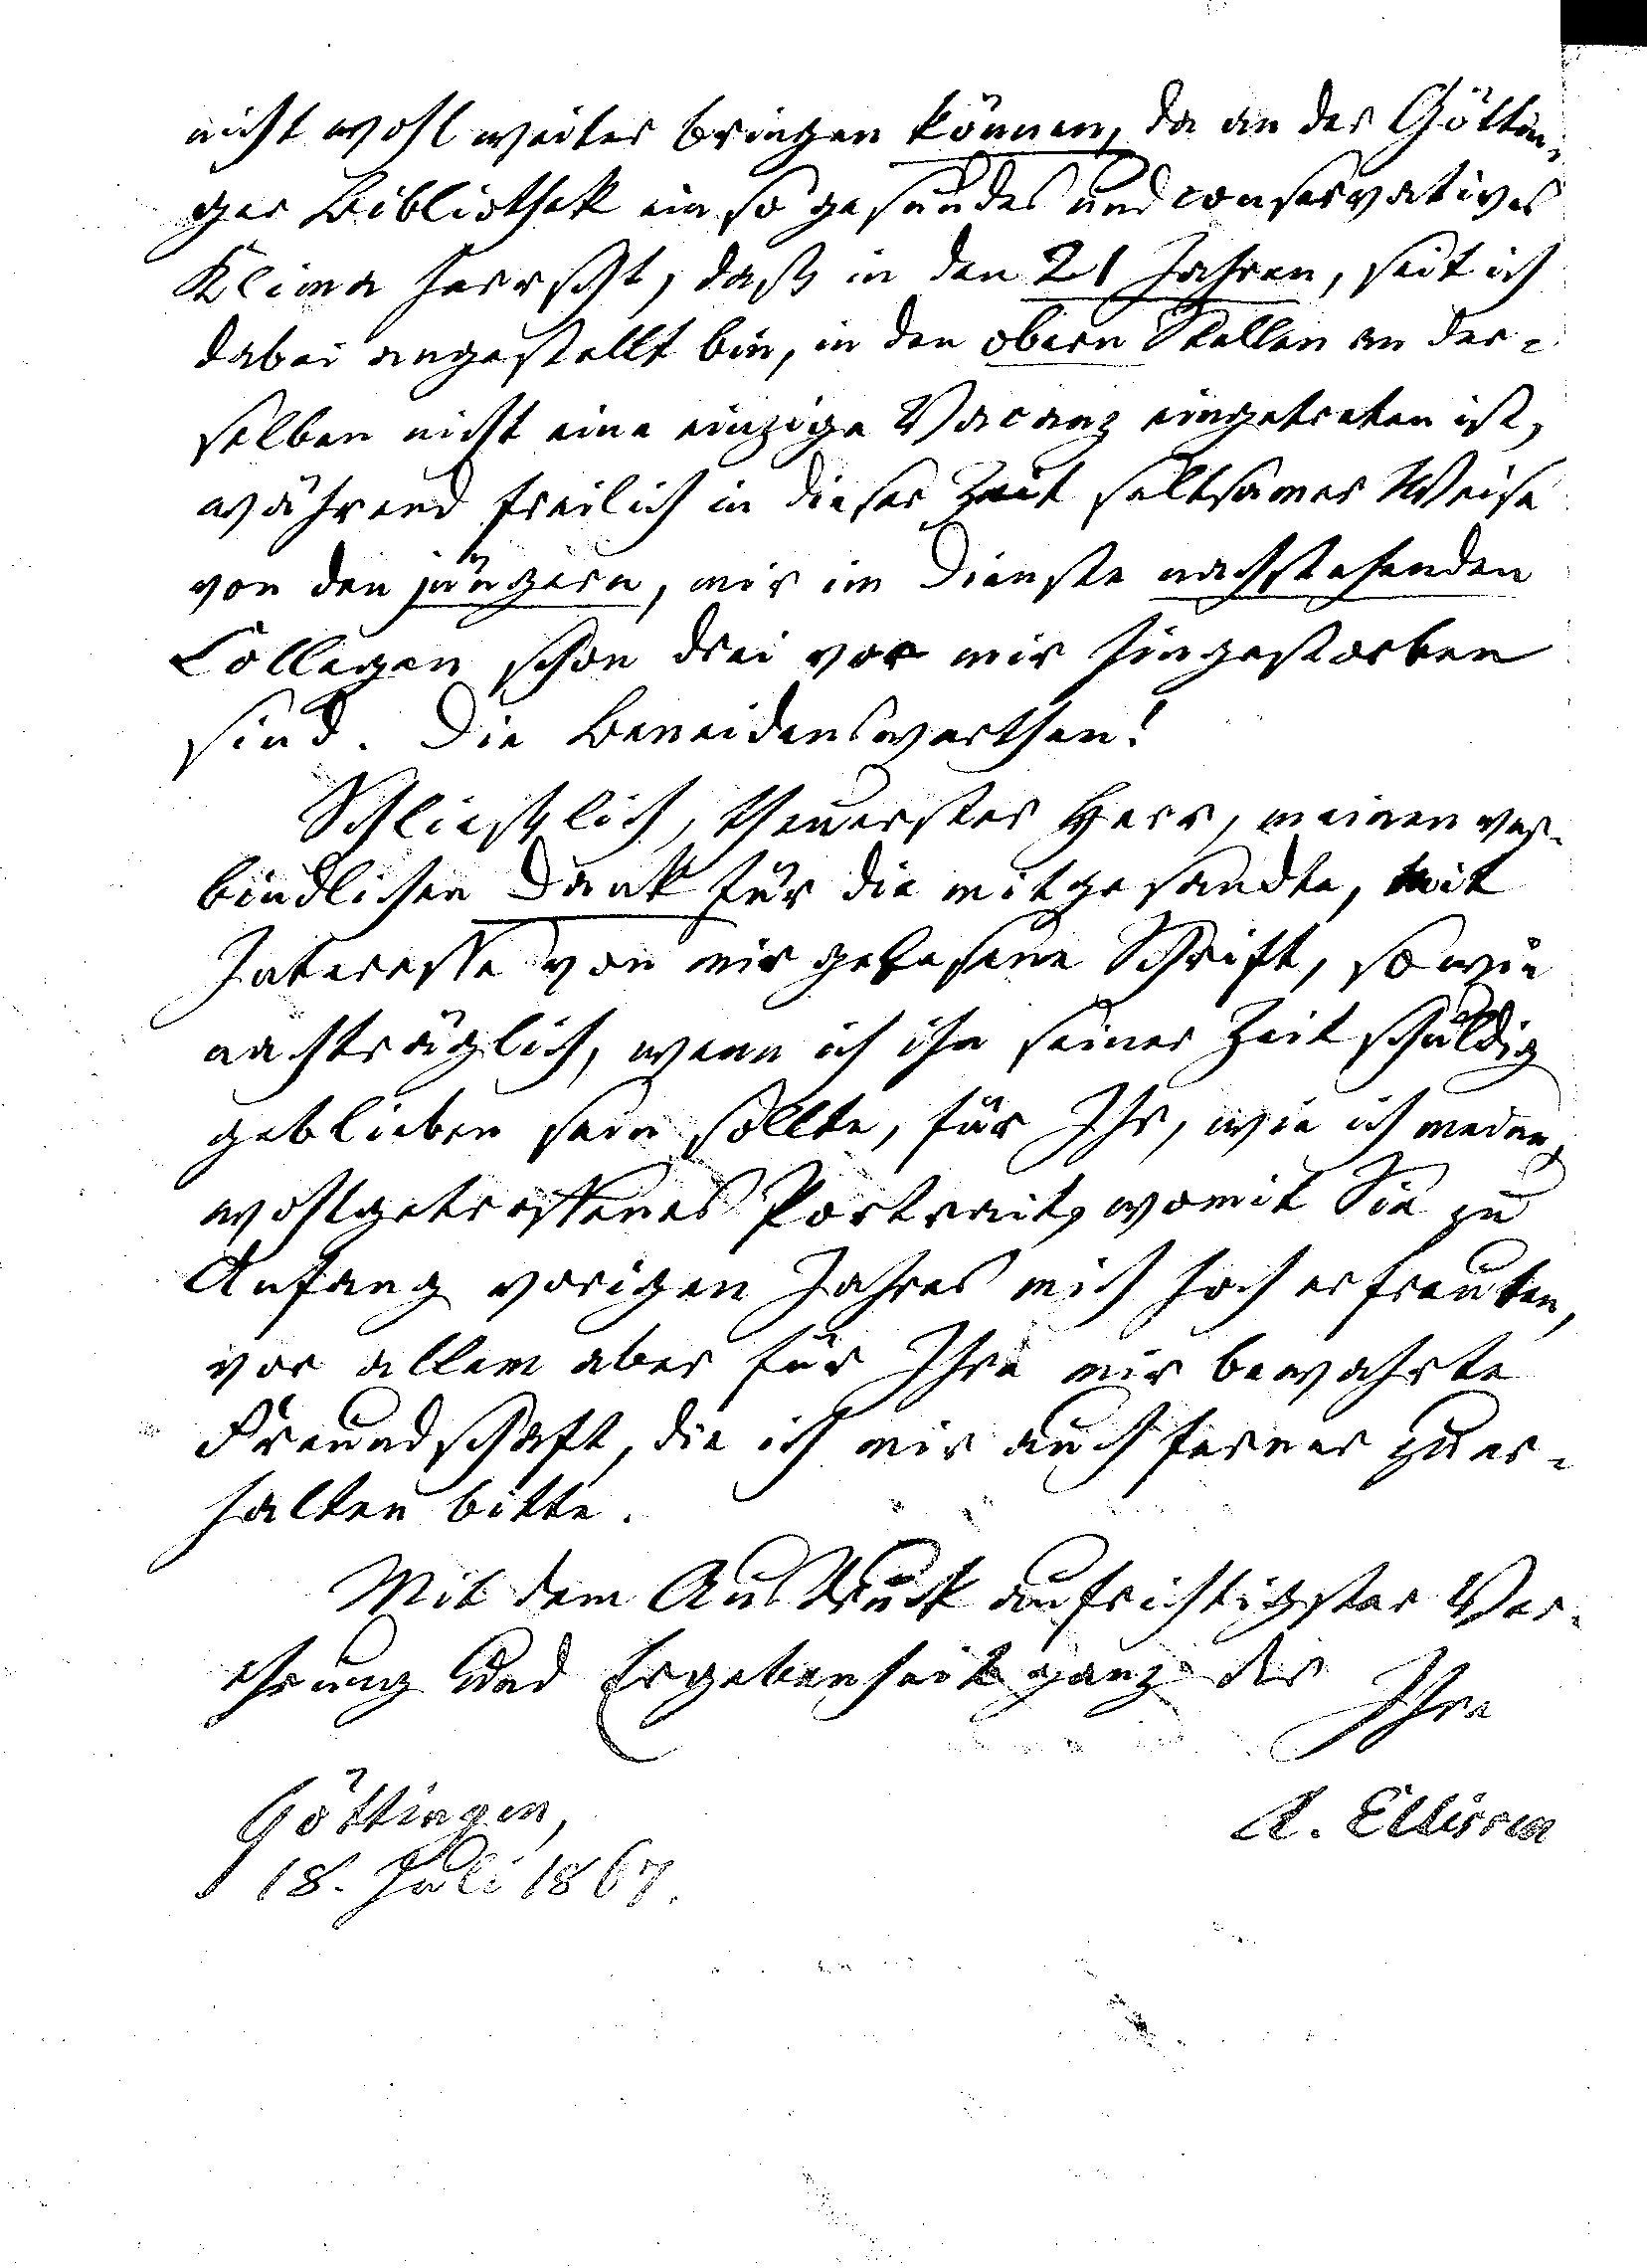 nicht wohl weiter bringen können, da an der Göttin-
ger Bibliothek ein so gesundes und conservatives
Klima herrscht, daß in den 21 Jahren, seit ich
dabei angestellt bin, in den obern Stellen an der-
selben nicht eine einzige Vacanz eingetreten ist,
während freilich in dieser Zeit seltsamer Weise
von den jüngern, mir im Dienste nachstehenden
Collegen schon drei vor mir hingestorben
sind. Die Beneidenswerthen!
Schließlich, theuerster Herr, meinen ver-
bindlichen Dank für die mitgesandte, mit
Interesse von mir gelesene Schrift, sowie
nachträglich, wenn ich ihn seiner Zeit schuldig
geblieben sein sollte, für Ihr, wie ich meine,
wohlgetroffenes Portrait, womit Sie zu
Anfang vorigen Jahres mich hoch erfreuten,
vor allem aber für Ihre mir bewahrte
Freundschaft, die ich mir auch ferner zu er-
halten bitte.
Mit dem Ausdruck aufrichtigster Ver-
ehrung und Ergebenheit ganz der Ihre
A. Ellissen
Göttingen,
18. Juli 1867.